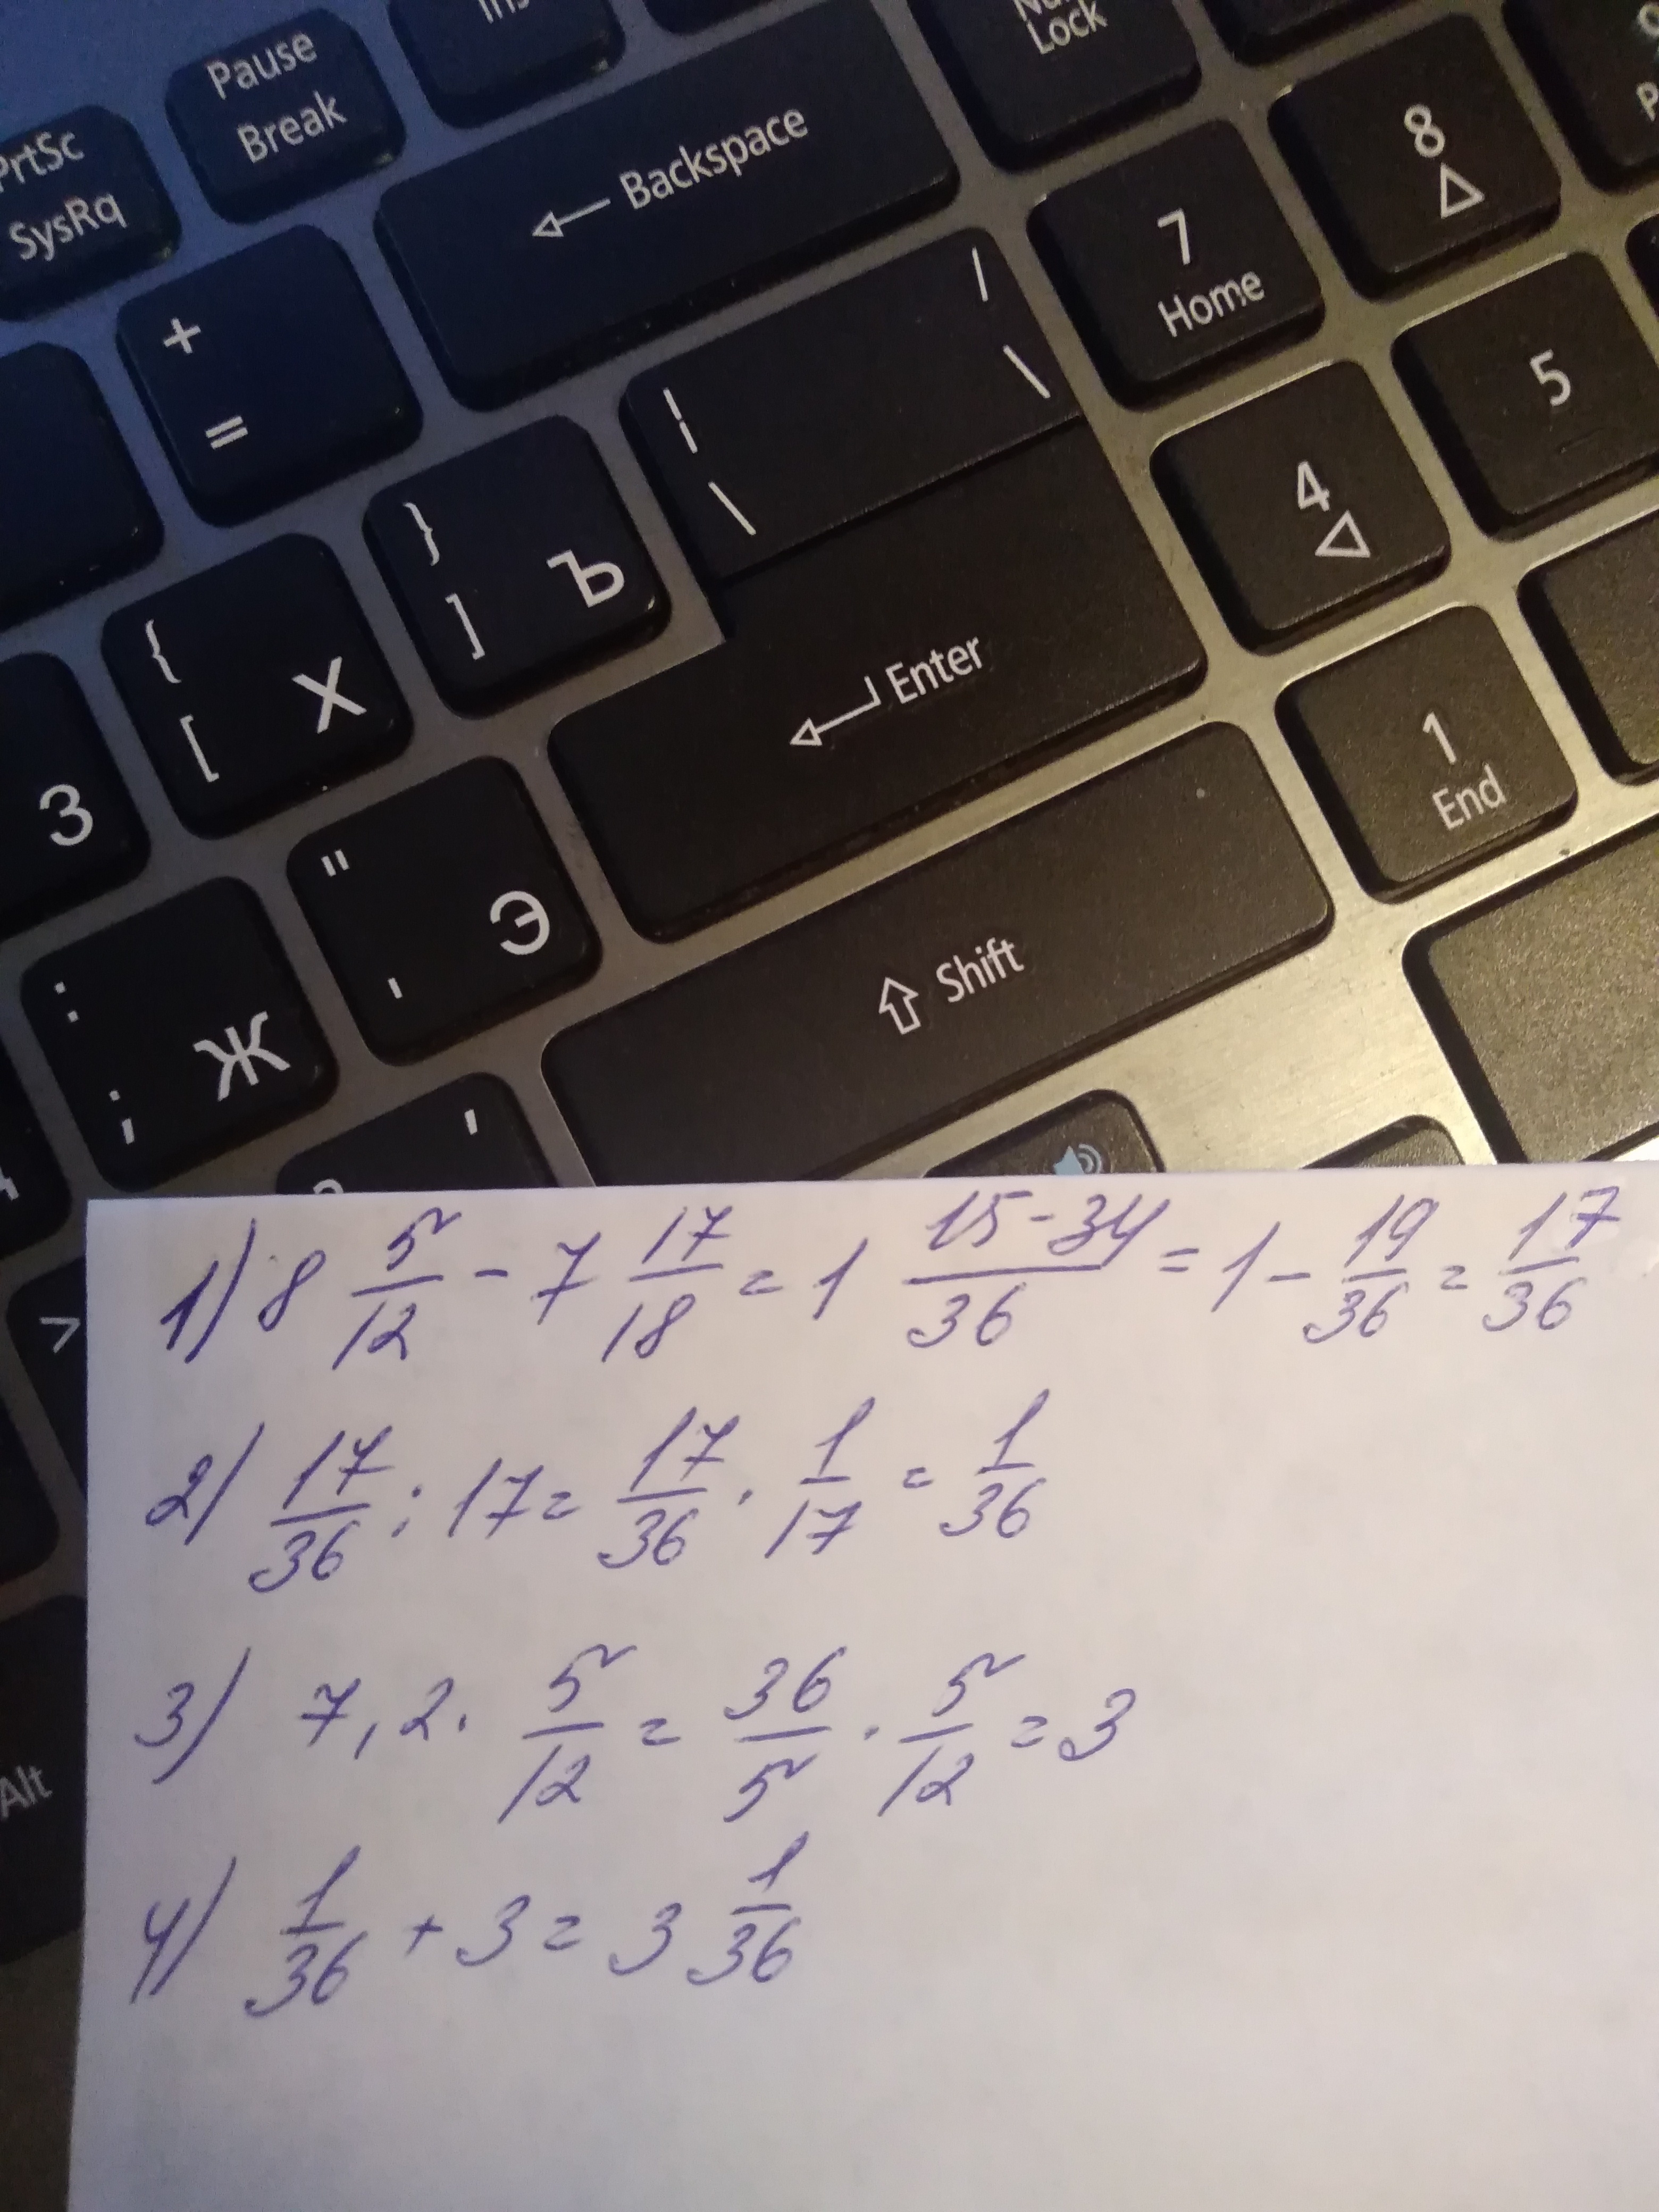 Ins
Pause
Break
PrtSc
SysRq
← Backspace
Lock
8
7
Home
+
=
|
\
/
\
5
4
}
]
Ъ
{
[
Х
← Enter
1
End
З
"
'
Э
⇧ Shift
:
;
Ж
,
>
Alt
1) 8 5/12 - 7 17/18 = 1 (15-34)/36 = 1 - 19/36 = 17/36
2) 17/36 : 17 = 17/36 · 1/17 = 1/36
3) 7,2 · 5/12 = 36/5 · 5/12 = 3
4) 1/36 + 3 = 3 1/36